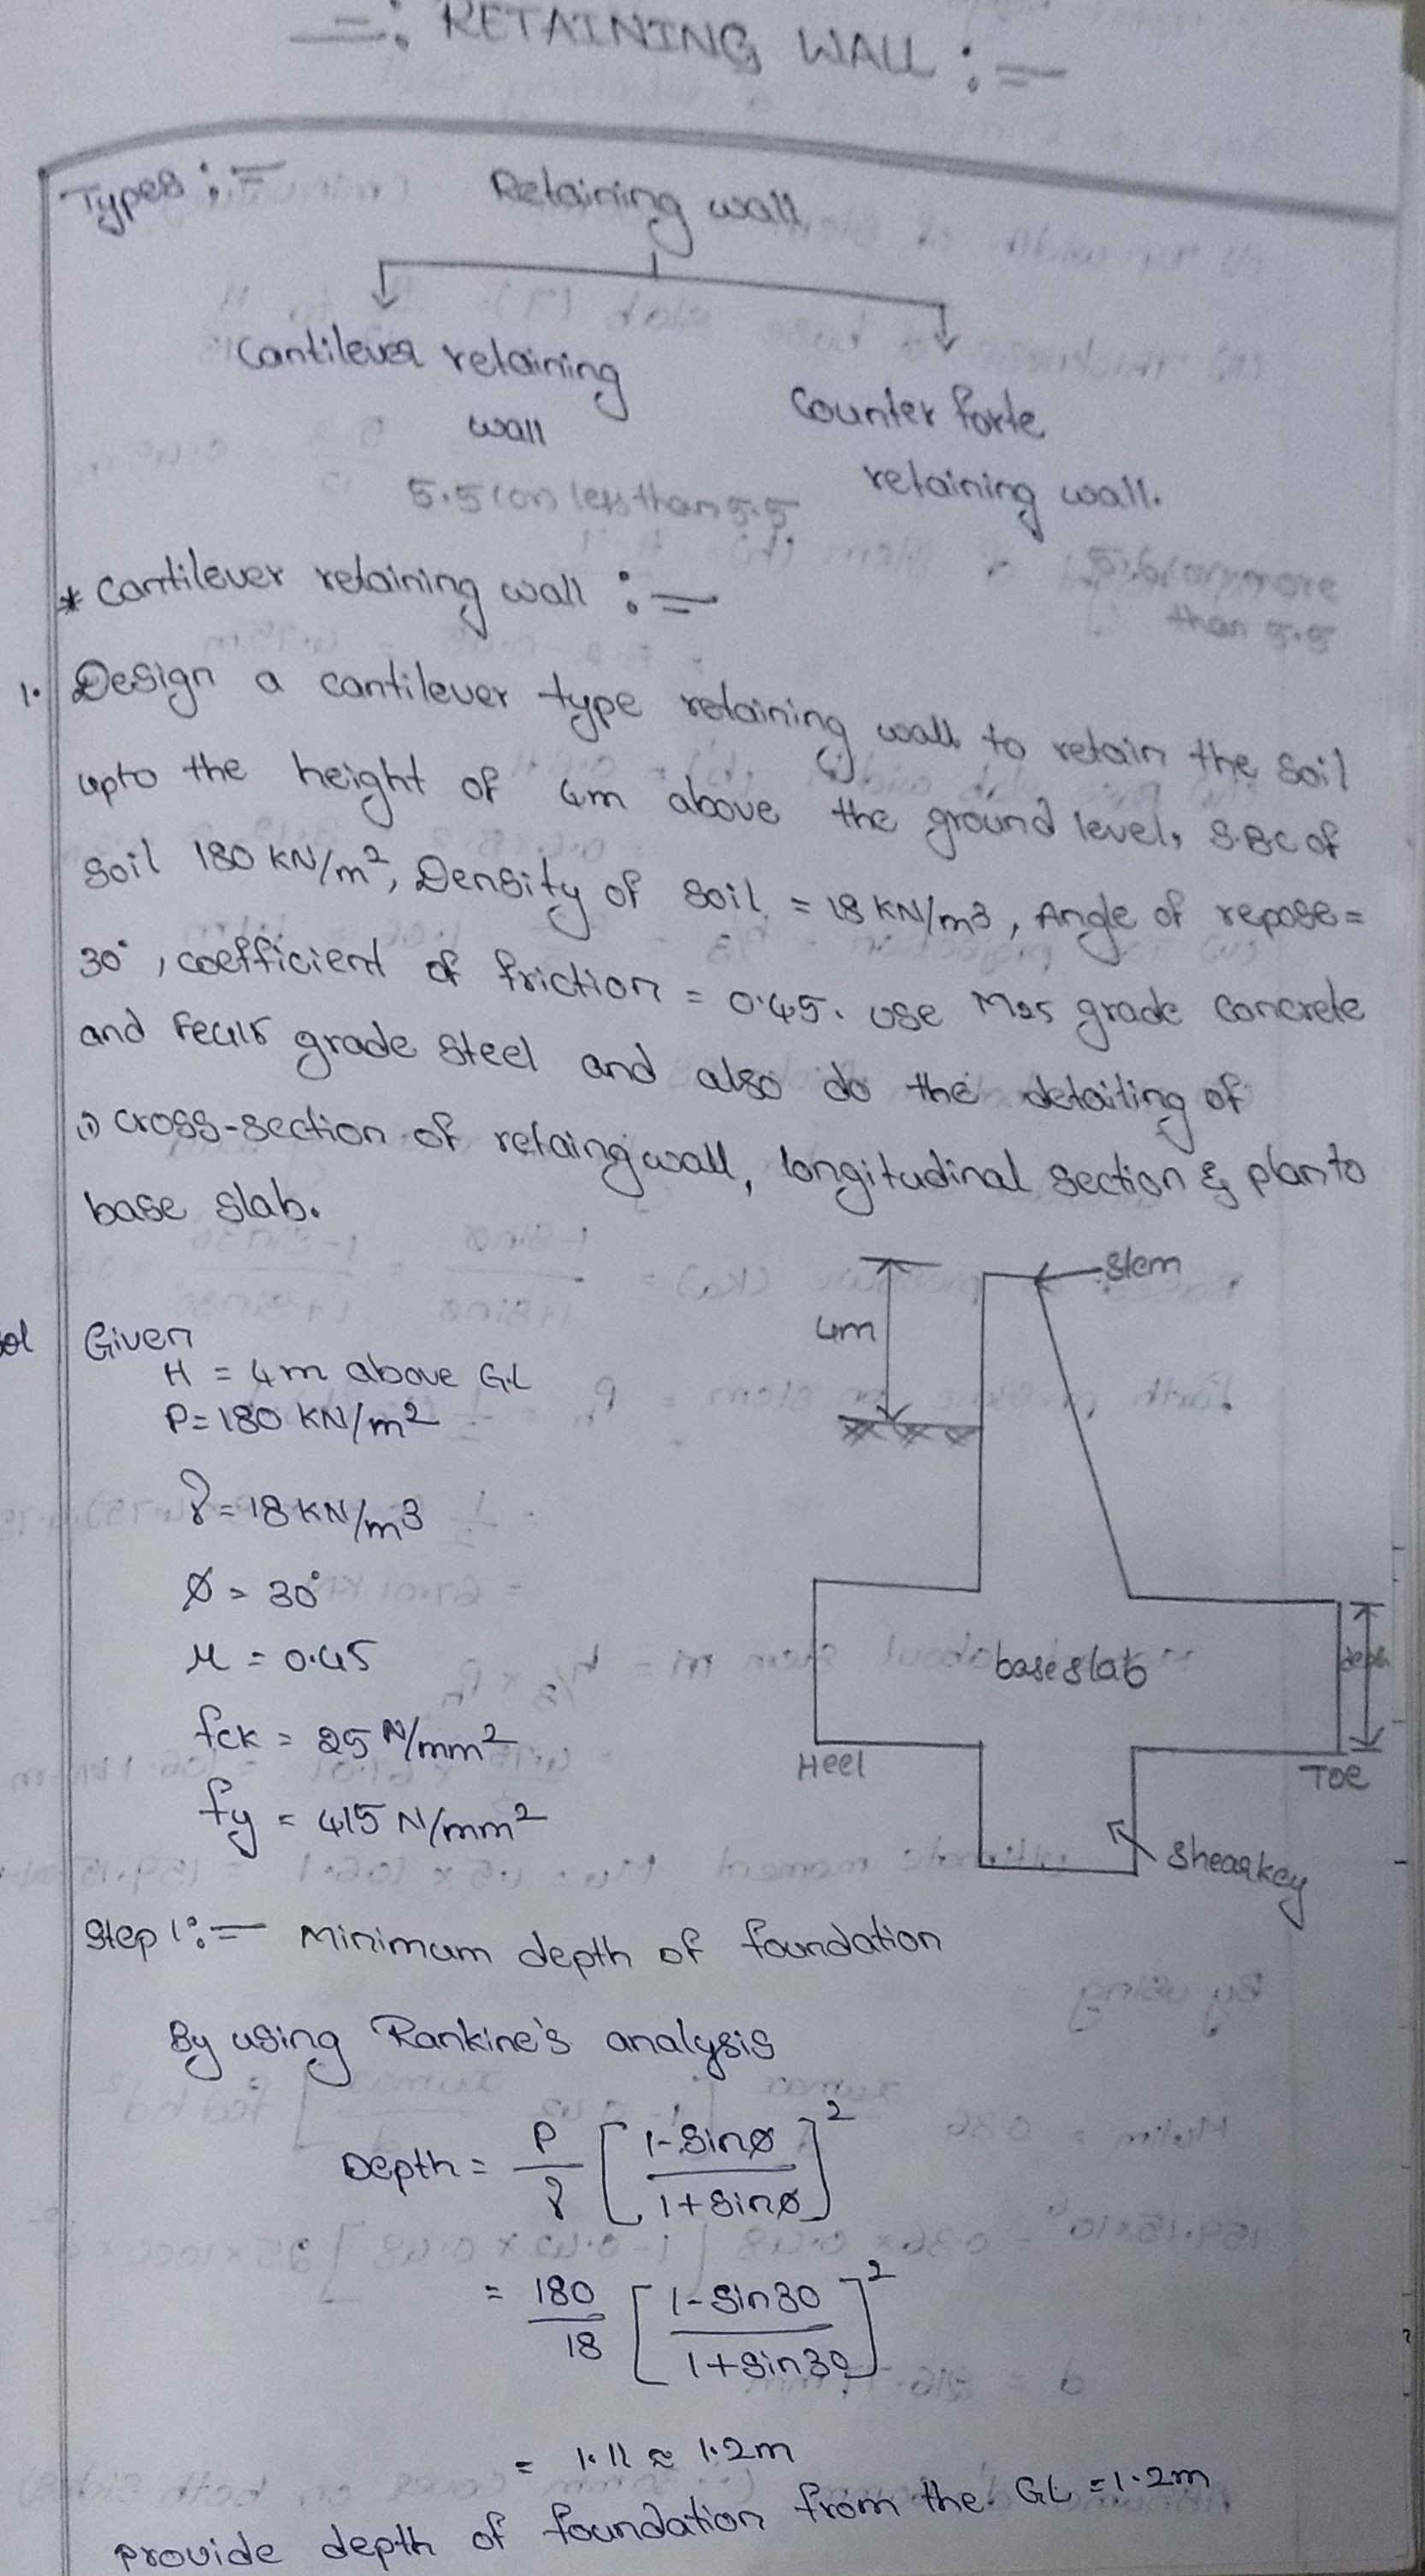 =: RETAINING WALL :=
Types :=
Retaining wall
Cantilever retaining
wall
5.5 (or) less than 5.5
Counter forte
retaining wall.
more
than 5.5
* Cantilever retaining wall :=
1. Design a cantilever type retaining wall to retain the soil
upto the height of 4m above the ground level, S.BC of
soil 180 KN/m², Density of soil = 18 KN/m3, Angle of repose =
30°, coefficient of friction = 0.45. use M25 grade concrete
and Fe415 grade steel and also do the detailing of
i) cross-section of retaing wall, longitudinal section & plan to
base slab.
Stem
4m
Sol Given
H = 4m above G.L
P = 180 KN/m2
γ = 18 KN/m3
Ø = 30°
μ = 0.45
fck = 25 N/mm2
fy = 415 N/mm2
base slab
depth
Heel
Toe
Shear key
Step 1:= Minimum depth of foundation
By using Rankine's analysis
Depth = P/γ [1-sinø / 1+sinø]²
= 180/18 [1-sin30 / 1+sin30]²
= 1.11 ≈ 1.2m
provide depth of foundation from the GL = 1.2m